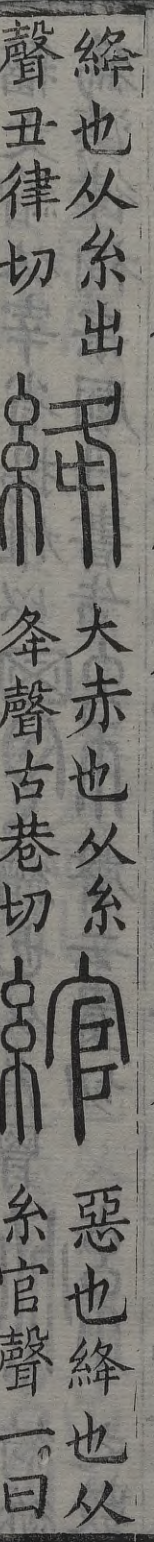 絳也从糸出
聲丑律切
絳
大赤也从糸
夅聲古巷切
綰
惡也絳也从
糸官聲一曰